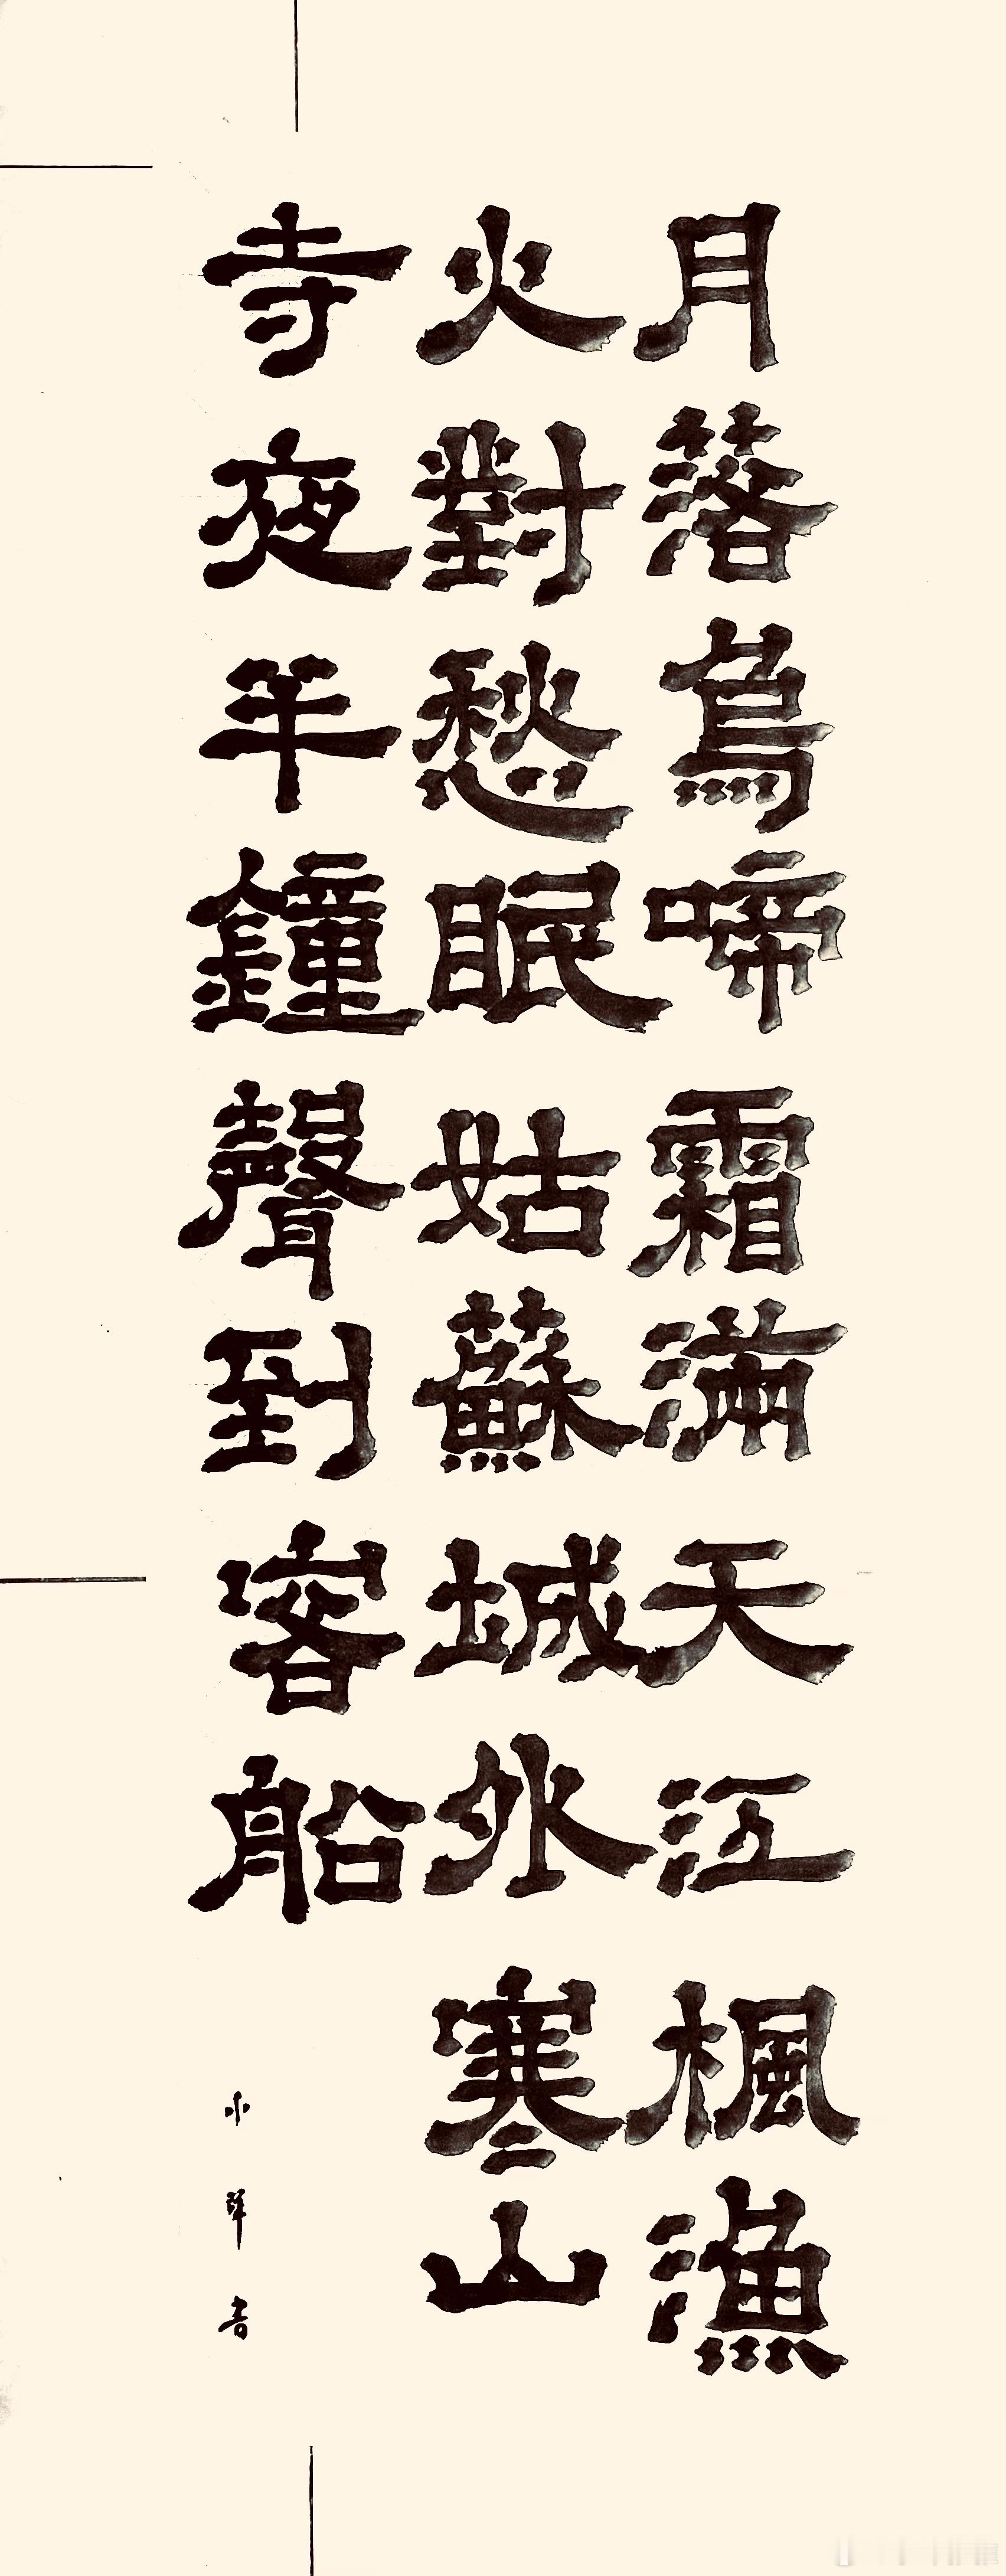 月落烏啼霜滿天江楓漁
火對愁眠姑蘇城外寒山
寺夜半鐘聲到客船
小軍書